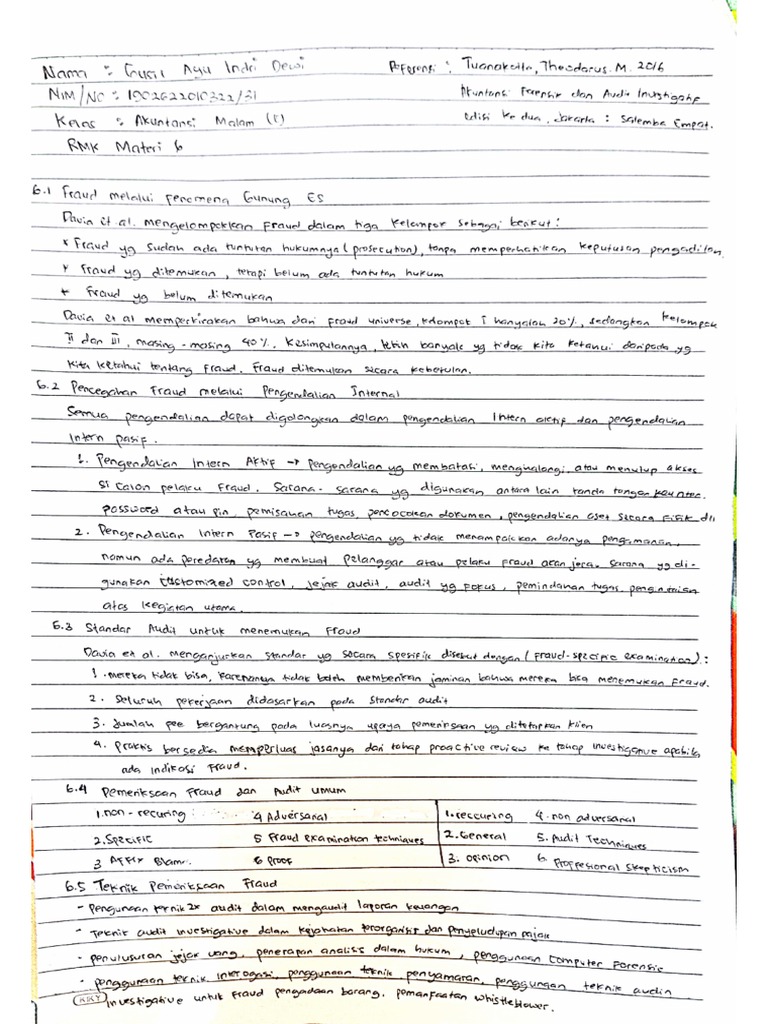 Nama : Gusti Ayu Indri Dewi
Referensi : Tuanakotta, Theodorus. M. 2016
NIM/NO : 1902622010322/31
Akuntansi Forensik dan Audit Investigatif
Kelas : Akuntansi Malam (
Edisi ke dua, Jakarta : Salemba Empat.
RMK Materi 6
6.1 Fraud melalui fenomena Gunung ES
Davia et al. mengelompokkan Fraud dalam tiga kelompok sebagai berikut :
* Fraud yg sudah ada tuntutan hukumnya (prosecution), tanpa memperhatikan keputusan pengadilan.
* Fraud yg ditemukan, tetapi belum ada tuntutan hukum
* Fraud yg belum ditemukan
Davia et al memperkirakan bahwa dari fraud universe, kelompok I hanyalah 20%, sedangkan kelompok
II dan III, masing-masing 40%. Kesimpulannya, lebih banyak yg tidak kita ketahui daripada yg
kita ketahui tentang Fraud. Fraud ditemukan secara kebetulan.
6.2 Pencegahan Fraud melalui Pengendalian Internal
Semua pengendalian dapat digolongkan dalam pengendalian Intern aktif dan pengendalian
Intern pasif.
1. Pengendalian Intern Aktif → pengendalian yg membatasi, menghalangi, atau menutup akses
si calon pelaku Fraud. Sarana-sarana yg digunakan antara lain tanda tangan kaunter.
password atau pin, pemisahan tugas, pencocokan dokumen, pengendalian aset secara fisik dll
2. Pengendalian Intern Pasif → pengendalian yg tidak menampakkan adanya pengamanan,
namun ada peredaran yg membuat pelanggar atau pelaku fraud akan jera. sarana yg di-
gunakan customized control, jejak audit, audit yg fokus, pemindahan tugas,
atas kegiatan utama.
6.3 Standar Audit untuk menemukan Fraud
Davia et al. menganjurkan standar yg secara spesifik disebut dengan (fraud-specific examination) :
1. mereka tidak bisa, karenanya tidak boleh memberikan jaminan bahwa mereka bisa menemukan Fraud.
2. Seluruh pekerjaan didasarkan pada standar audit
3. Jumlah fee bergantung pada luasnya upaya pemeriksaan yg ditetapkan klien
4. praktis bersedia memperluas jasanya dari tahap proactive review ke tahap investigative apabila
ada indikasi Fraud.
6.4 Pemeriksaan Fraud dan Audit umum
1. non-recuring 4 Adversarial 1. reccuring 4. non adversarial
2. Specific 5 Fraud examination techniques 2. General 5. Audit Techniques
3 Affix Blame. 6 Proof 3. opinion 6. Proffesional Skepticism
6.5 Teknik Pemeriksaan Fraud
- Penggunaan teknik2x audit dalam mengaudit laporan keuangan
- Teknik audit investigative dalam kejahatan terorganisir dan penyeludupan pajak
- penulusuran jejak uang, penerapan analisis dalam hukum, penggunaan Computer Forensic
- penggunaan teknik interogasi, penggunaan teknik penyamaran, penggunaan teknik audin
KKY Investigative untuk fraud pengadaan barang. pemanfaatan whistleblower.